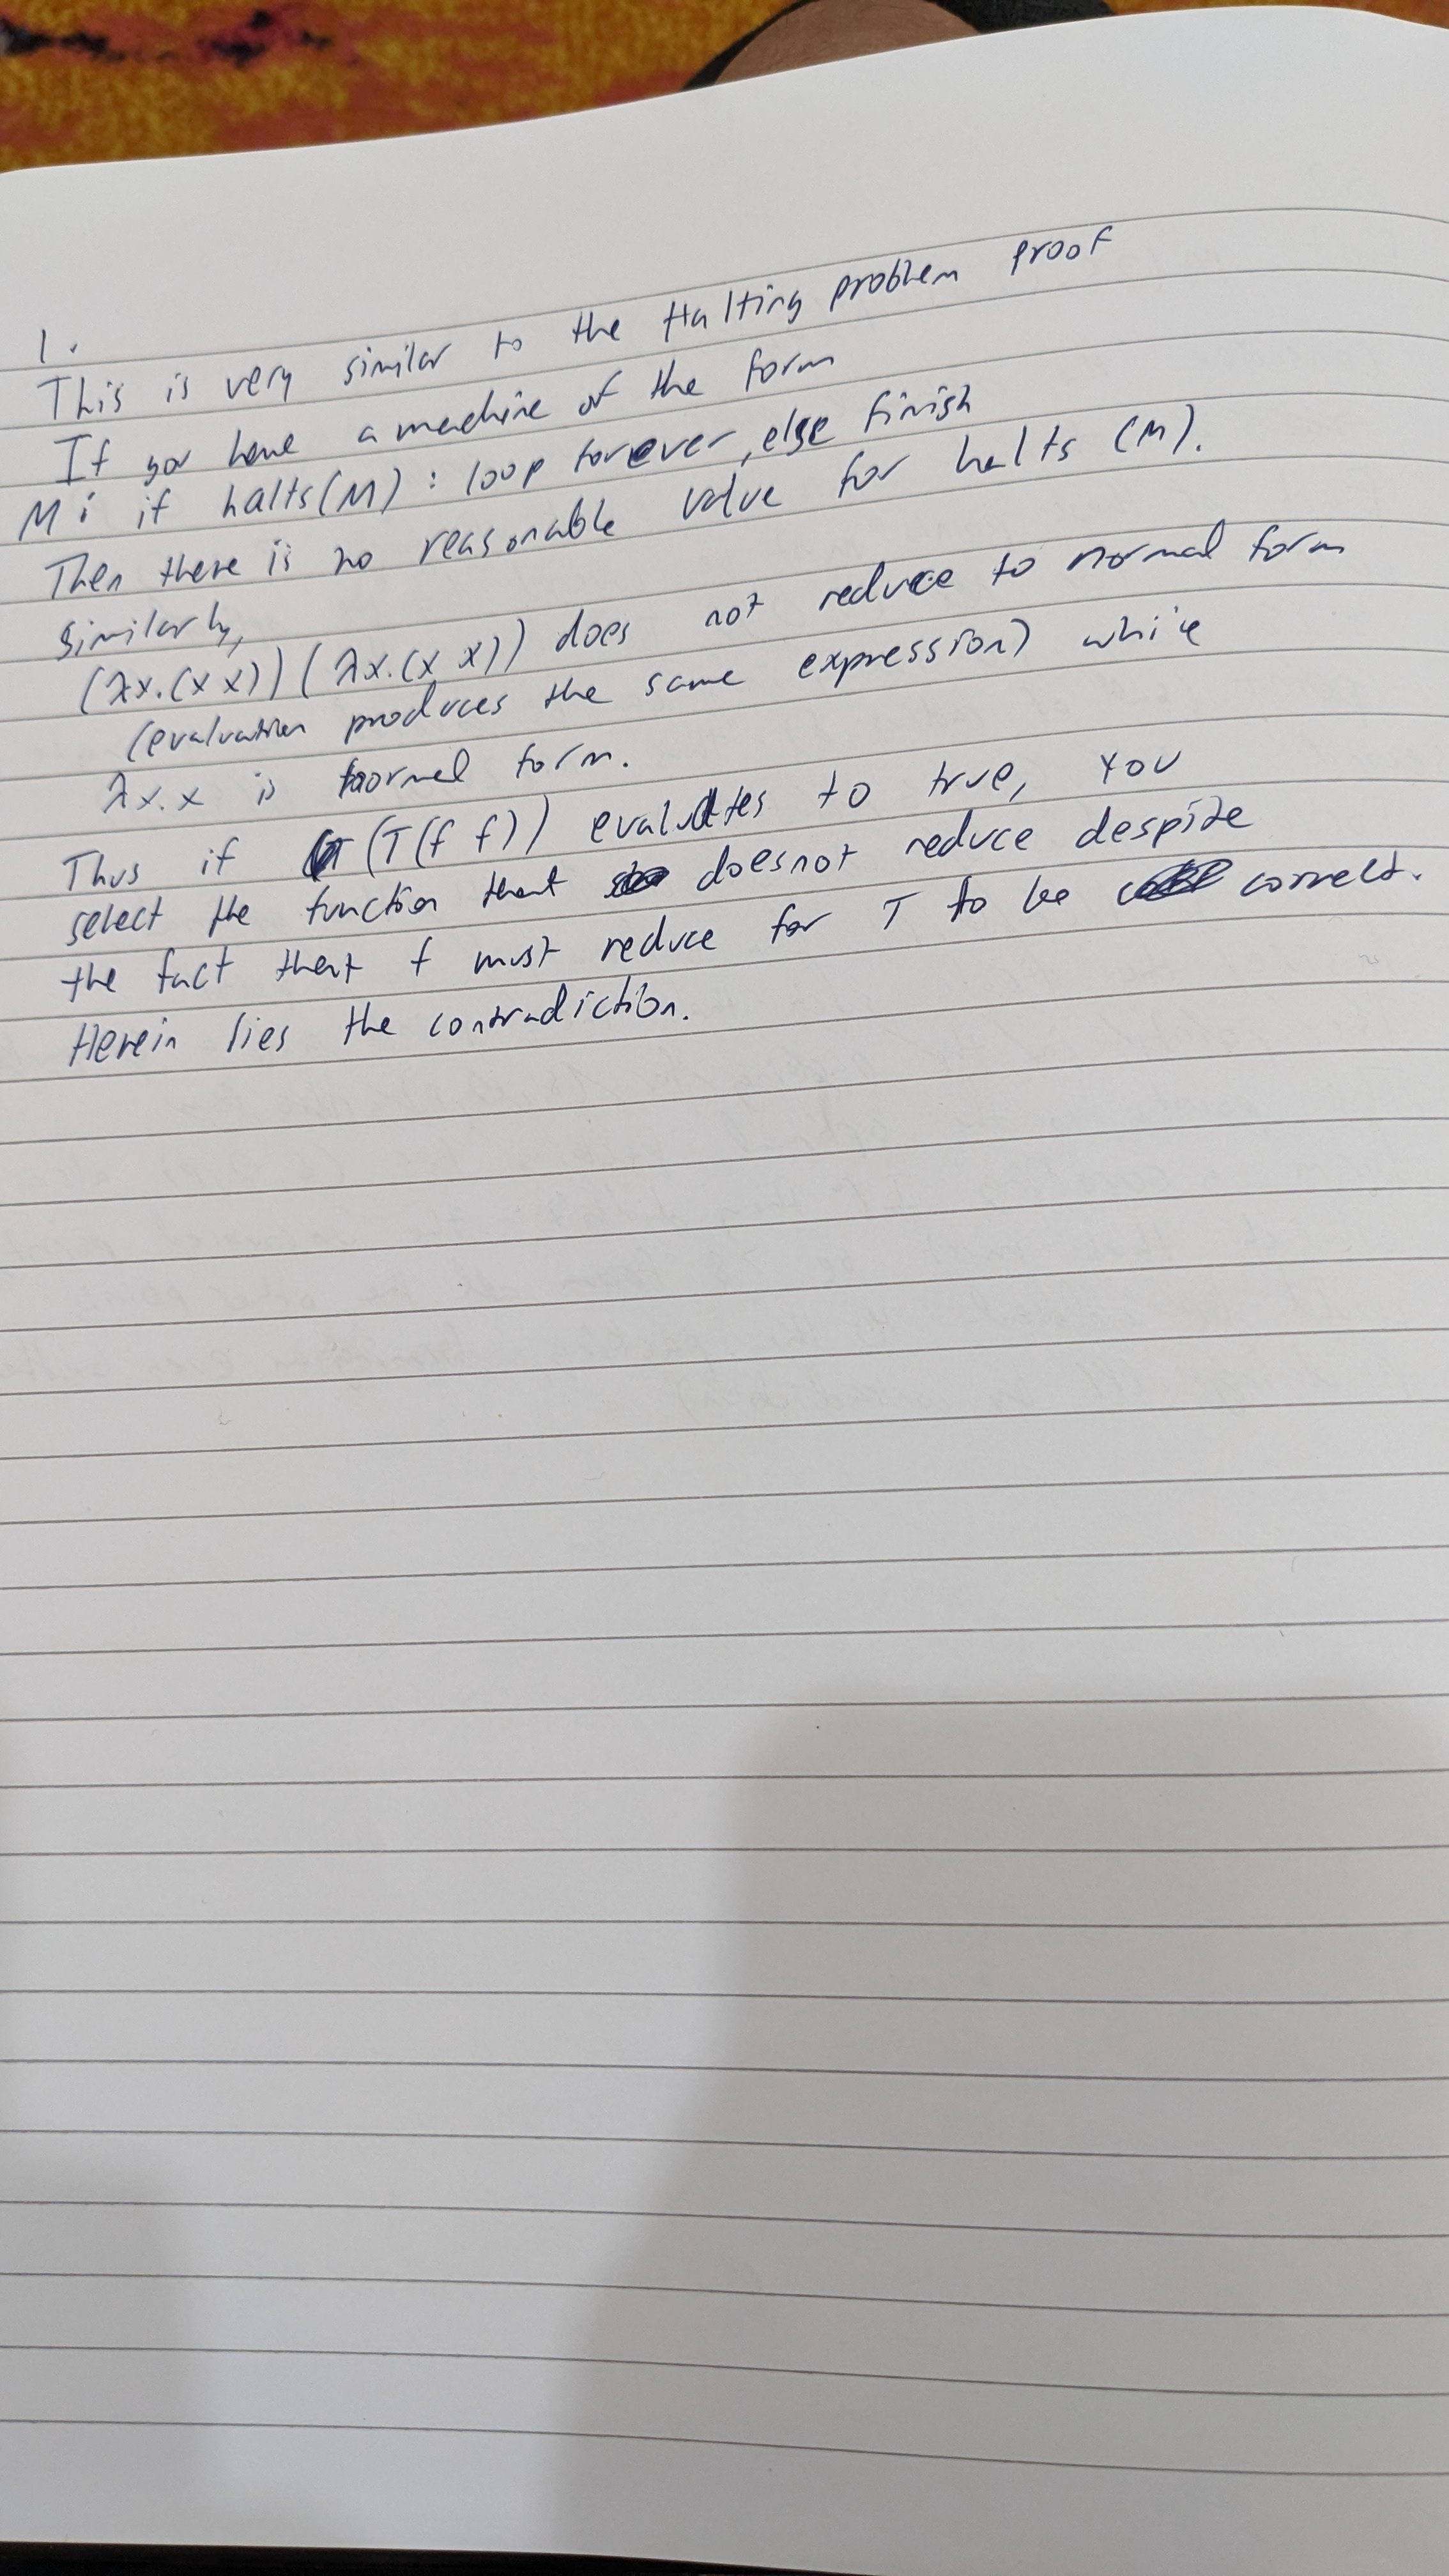 1.
This is very similar to the Halting problem proof
If you have a machine of the form
M: if halts(M) : loop forever, else finish
Then there is no reasonable value for halts (M).
Similarly,
(λx.(x x)) (λx.(x x)) does not reduce to normal form
(evaluation produces the same expression) while
λx.x is normal form.
Thus if (T(f f)) evaluates to true, you
select the function that does not reduce despite
the fact that f must reduce for T to be correct.
Herein lies the contradiction.